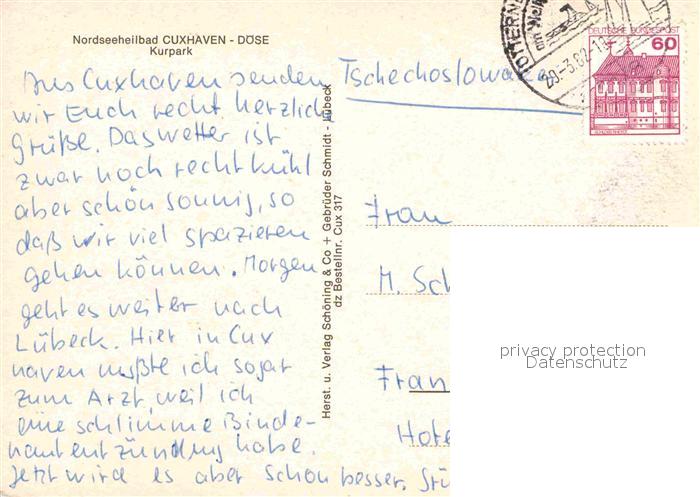 Nordseeheilbad CUXHAVEN - DÖSE
Kurpark
Aus Cuxhaven senden
wir Euch recht herzliche
Grüße. Das Wetter ist
zwar noch recht kühl
aber schön sonnig, so
daß wir viel spazieren
gehen können. Morgen
geht es weiter nach
Lübeck. Hier in Cux
haven mußte ich sogar
zum Arzt, weil ich
eine schlimme Binde-
hautentzündung habe.
Jetzt wird es aber schon besser.
Herst. u. Verlag Schöning & Co + Gebrüder Schmidt - Lübeck
dz Bestellnr. Cux 317
Tschechoslowakei
DEUTSCHE BUNDESPOST
60
29.-3.82-1
Frau
M. Sch
Fran
Hote
privacy protection
Datenschutz